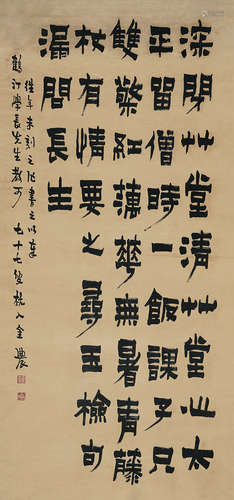 深閉艸堂清艸堂心太
平留僧時一飯課子只
雙檠紅藕華無暑青藤
杖有情要之尋玉檢句
漏問長生
往年未刻之作書之以奉
鶴汀學長先生教可 七十七叟杭人金農